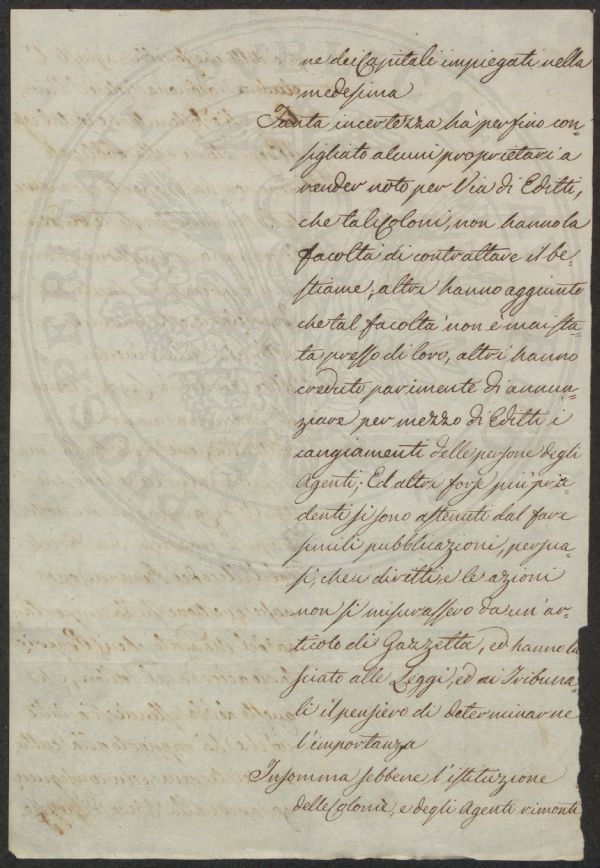 ne dei Capitali impiegati nella
medesima
Tanta incertezza hà perfino con=
sigliato alcuni proprietari a
render noto per Via di Editti,
che tali Coloni, non hanno la
facoltà di contrattare il be=
stiame; altri hanno aggiunto
che tal facoltà non è mai sta=
ta presso di loro, altri hanno
creduto parimente di annun=
ziare per mezzo di Editti i
cangiamenti delle persone degli
Agenti; Ed altri forse più pru=
denti si sono astenuti dal fare
simili pubblicazioni, persua=
si, che i diretti, e le azioni
non si misurassero da un'ar=
ticolo di Gazzetta, ed hanno la=
sciato alle Leggi, ed ai Tribuna=
li il pensiero di determinarne
l'importanza
Insomma sebbene l'istituzione
delle Colonie, e degli Agenti rimonti